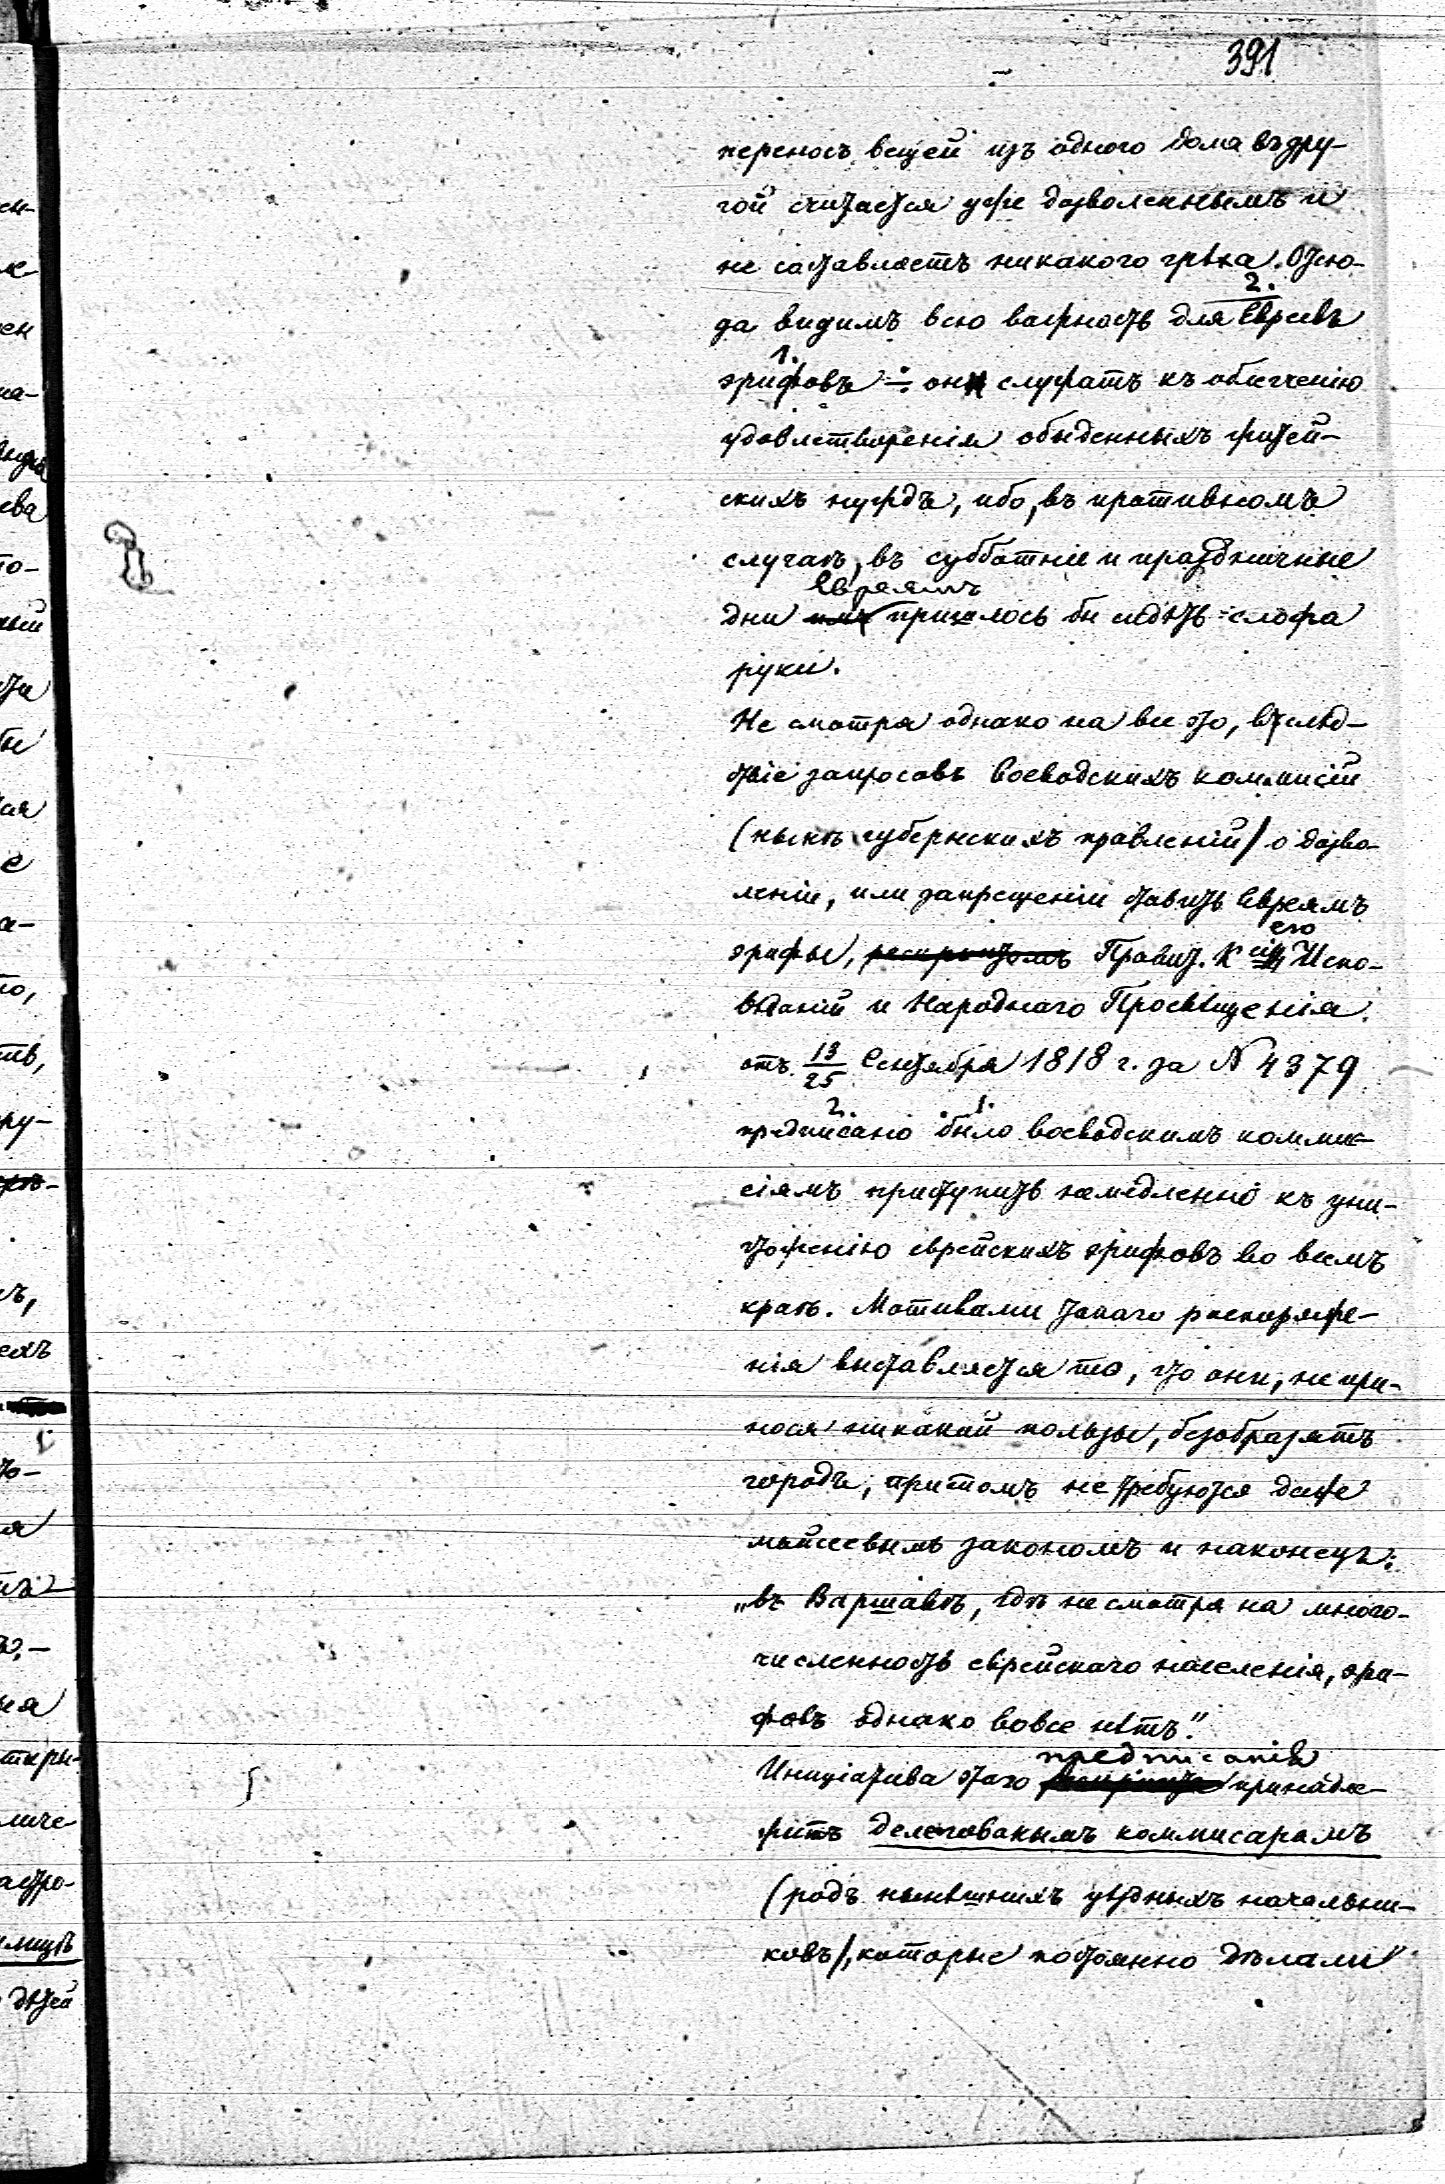 391
переносъ вещей изъ одного дома въ дру-
гой считается уже дозволеннымъ и
не составляетъ никакого грѣха. Отсю-
2.
да видимъ всю важность для Евреевъ
1.
эрифовъ ÷ они служатъ къ облегченію
удовлетворенія обыденныхъ житей-
скихъ нуждъ, ибо, въ противномъ
случаѣ, въ субботніе и праздничные
Евреямъ
дни имъ пришлось бы сидѣть сложа
руки.
Не смотря однако на все это, вслѣд-
ствіе запросовъ воеводскихъ коммисій
(нынѣ губернскихъ правленій) о дозво-
леніи, или запрещеніи ставить Евреямъ
ею
эрифы, рескриптомъ Правит. К сіи Испо-
вѣданій и Народнаго Просвѣщенія
отъ 13/25 Сентября 1818 г. за № 4379
2. 1.
предписано было воеводскимъ коммис-
сіямъ приступить немедленно къ уни-
чтоженію еврейскихъ эрифовъ во всемъ
краѣ. Мотивами такаго распоряже-
нія выставляется то, что они, не при-
нося никакой пользы, безобразятъ
города, притомъ не требуются даже
мойсеевымъ закономъ и наконецъ:
„въ Варшавѣ, гдѣ не смотря на много-
численность еврейскаго населенія, эри-
фовъ однако вовсе нѣтъ."
предписанія
Иниціатива этаго принадле-
житъ делегованымъ коммисарамъ
(родъ нынѣшнихъ уѣздныхъ начальни-
ковъ), которые постоянно дѣлали